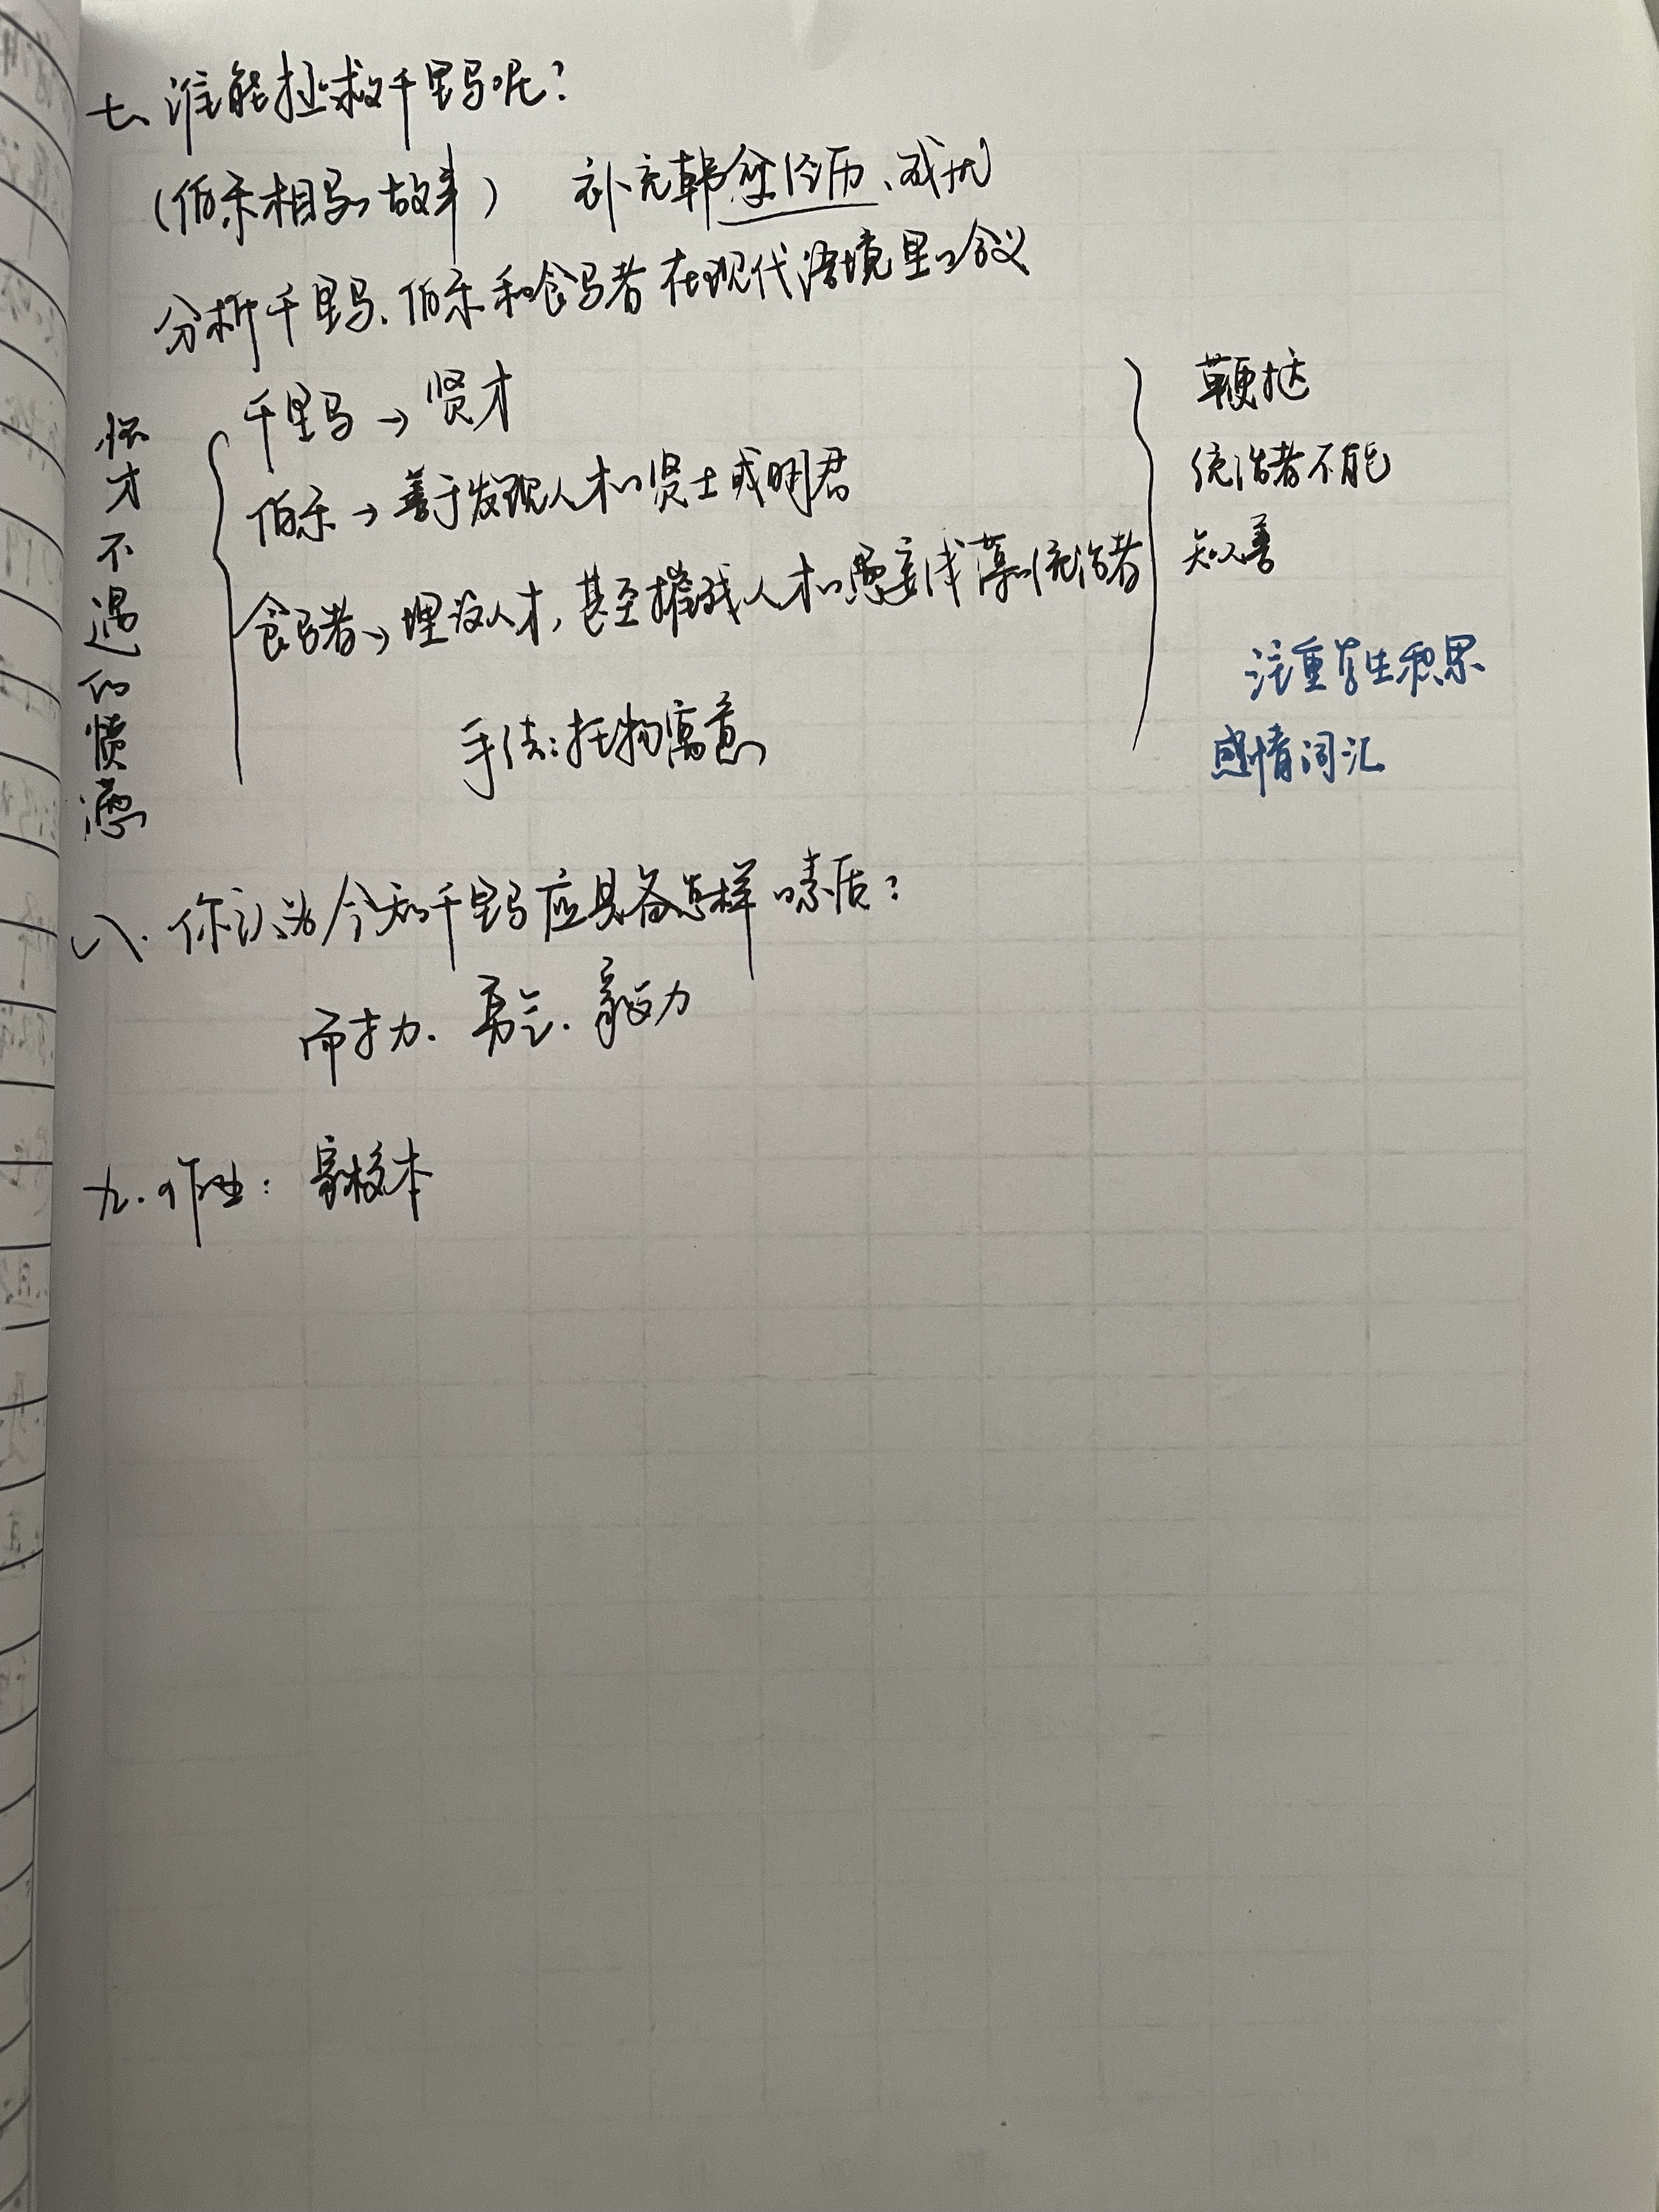 七、谁能拯救千里马呢？
(伯乐相马的故事) 补充韩愈经历、
分析千里马、伯乐和食马者在现代语境里的含义
怀才不遇的愤懑
千里马→贤才
伯乐→善于发现人才的贤士或明君
食马者→埋没人才，甚至摧残人才的愚妄浅薄的统治者
手法：托物寓意
鞭挞
统治者不能
知人善
注重学生积累
感情词汇
八、你认为今天的千里马应具备怎样的素质？
耐力、勇气、毅力
九、作业：家校本